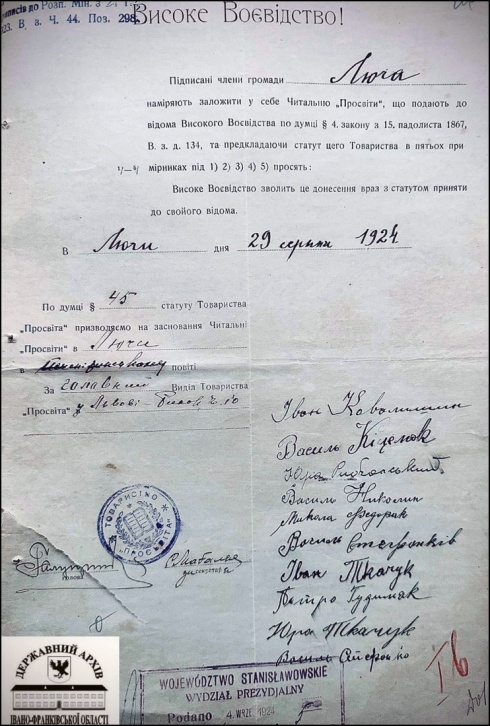 до Розп. Мін. з
В. з Ч. 44. Поз. 298
Високе Воєвідство!
Підписані члени громади Люча
наміряють заложити у себе Читальню „Просвіти“, що подають до
відома Високого Воєвідства по думці § 4. закону з 15. падолиста 1867,
В. з. д. 134, та предкладаючи статут цего Товариства в пятьох при
мірниках під 1) 2) 3) 4) 5) просять:
Високе Воєвідство зволить це донесення враз з статутом приняти
до свойого відома.
В Лючи дня 29 серпня 1924
По думці § 45 статуту Товариства
„Просвіта“ призводяємо на заснования Читальні
„Просвіти“ в Лючи
в повіті.
За головний Виділ Товариства
„Просвіта“ у Львові
Іван
Василь
Юра
Василь Николин
Микола Федорак
Василь Стефанків
Іван Ткачук
Петро Гудимак
Юра Ткачук
Василь
ТОВАРИСТВО
„ПРОСЬВІТА“
Голова
ДЕРЖАВНИЙ АРХІВ
ІВАНО-ФРАНКІВСЬКОЇ ОБЛАСТІ
WOJEWÓDZTWO STANISŁAWOWSKIE
WYDZIAŁ PREZYDJALNY
Podano 4. WRZE. 1924